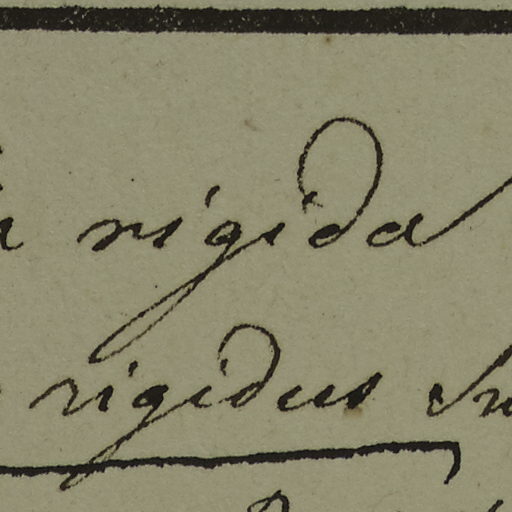 rigida
rigidus